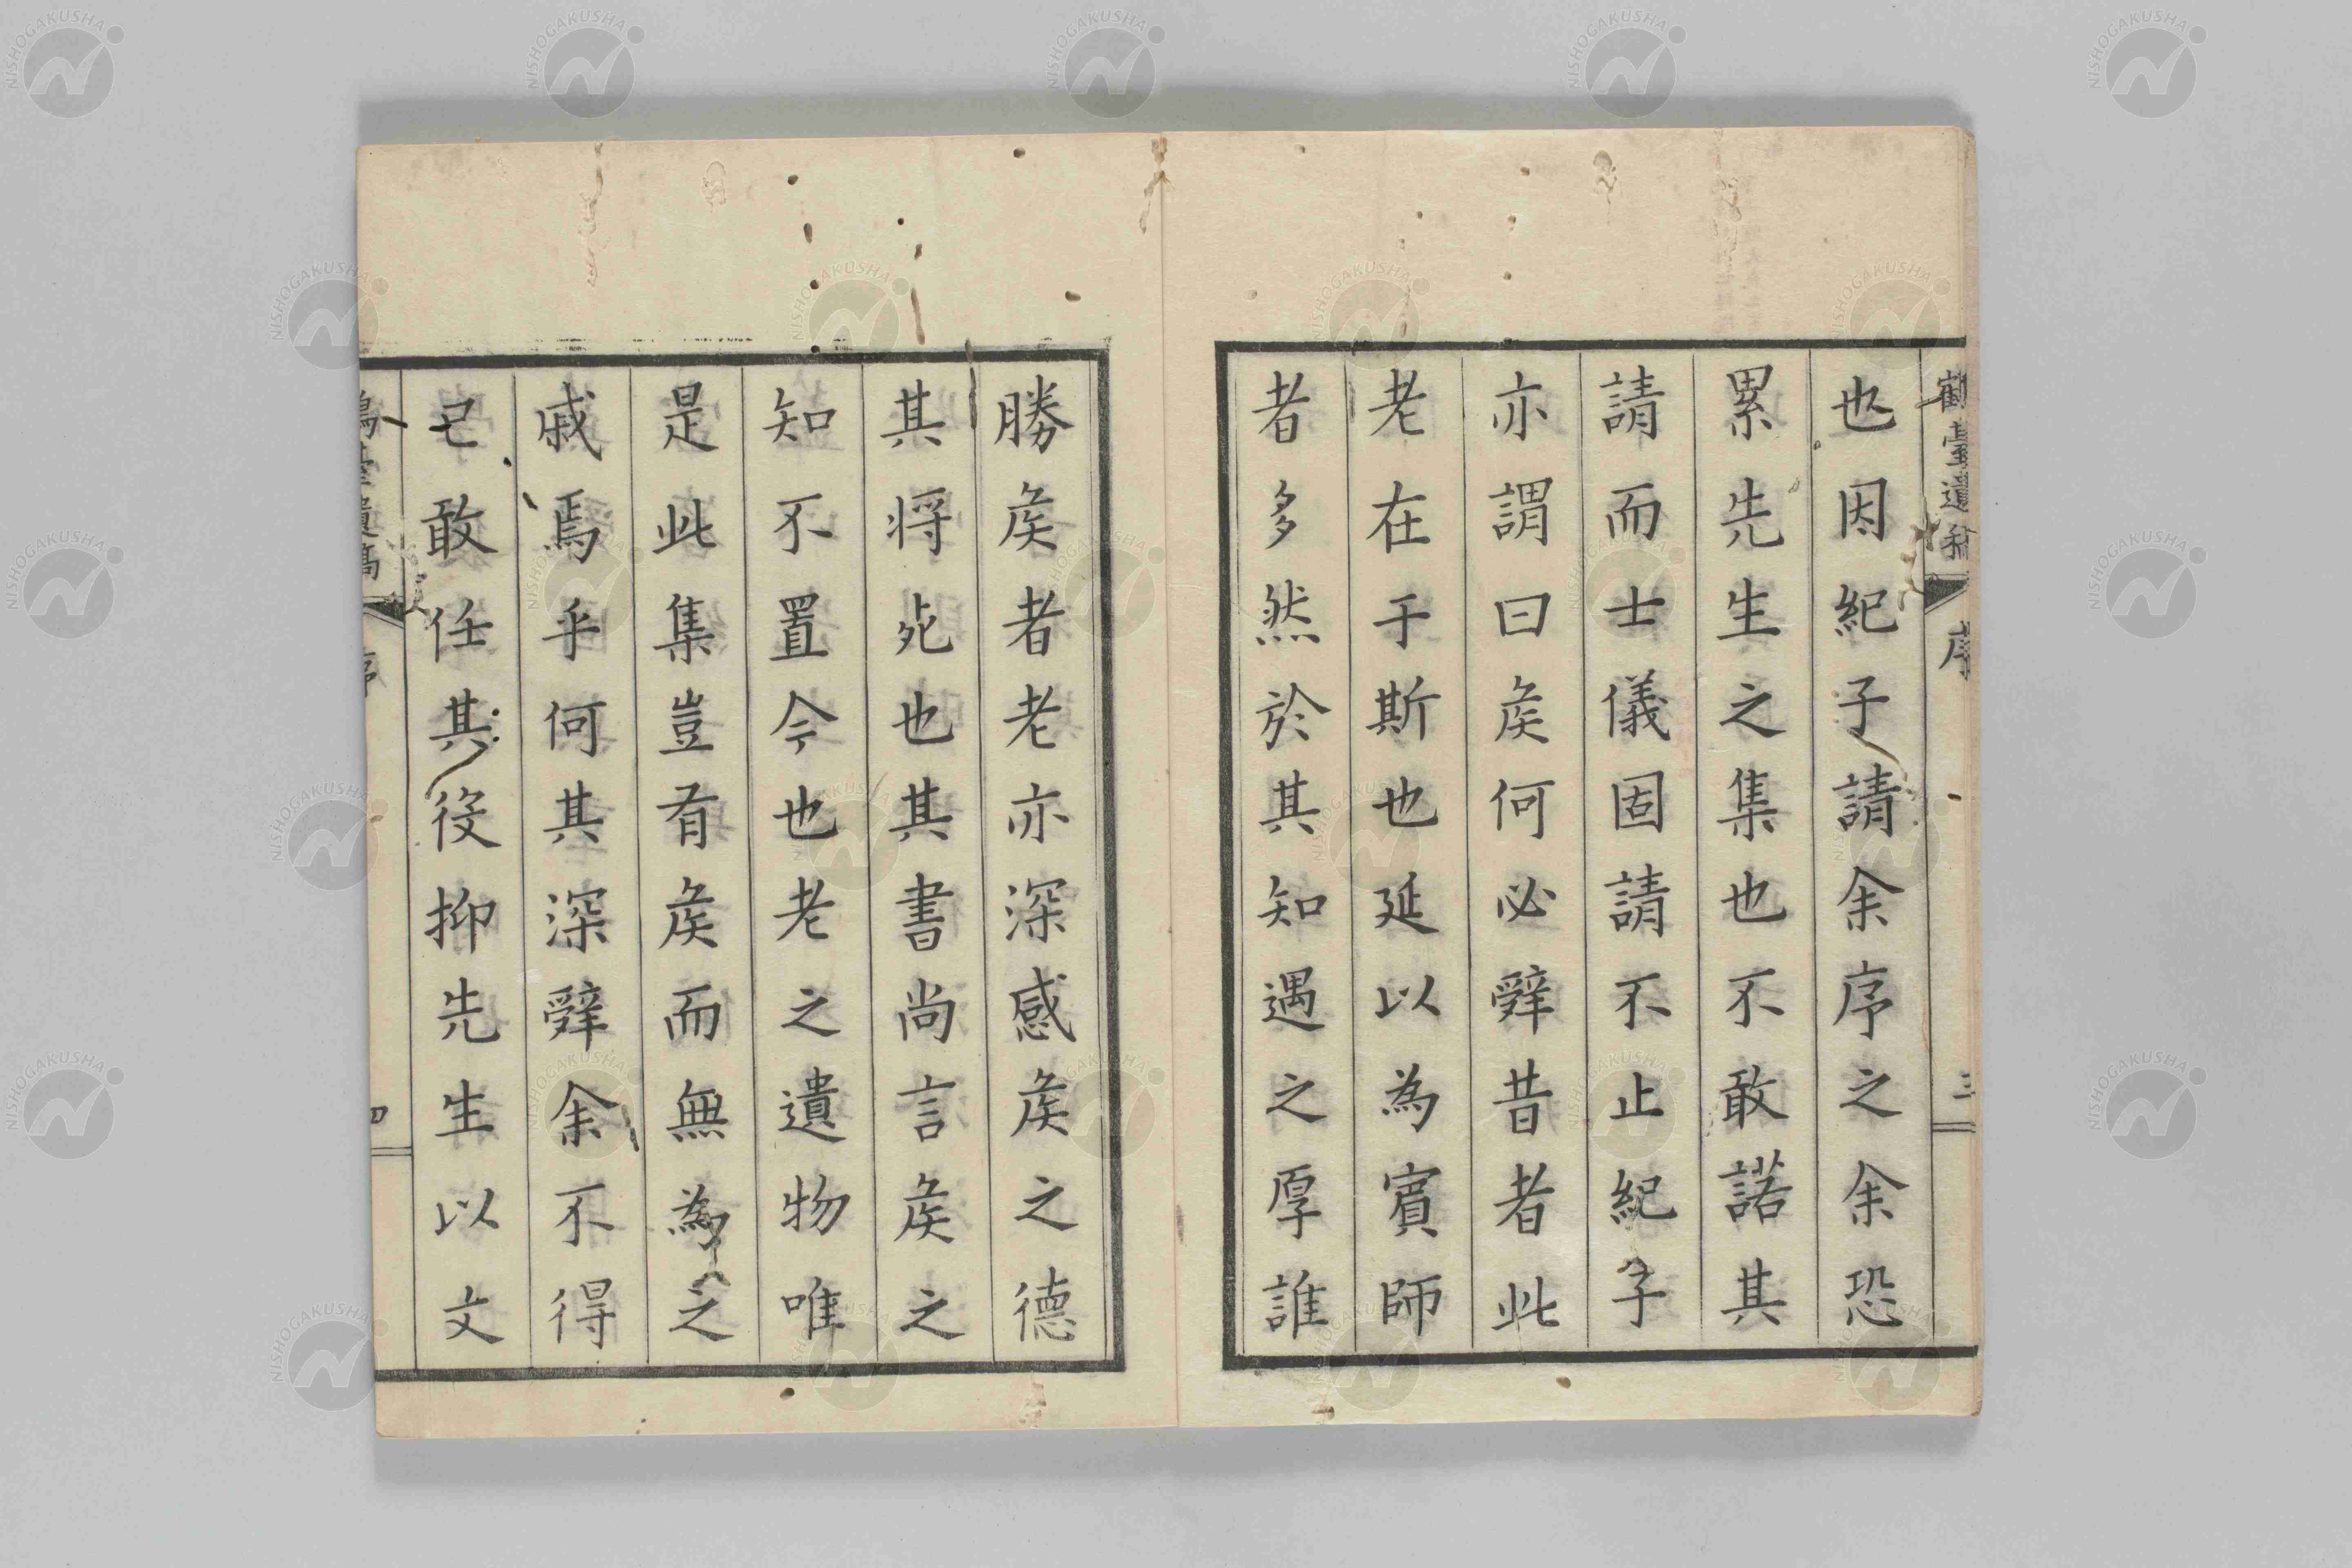 鶴臺遺稿
序
三
也因紀子請余序之余恐
累先生之集也不敢諾其
請而士儀固請不止紀子
亦謂曰矦何必辤昔者此
老在于斯也延以為賓師
者多然於其知遇之厚誰
勝矦者老亦深感矦之德
其將死也其書尚言矦之
知不置今也老之遺物唯
是此集豈有矦而無為之
戚焉乎何其深辤余不得
已敢任其役抑先生以文
鶴臺遺稿
序
四
NISHOGAKUSHA